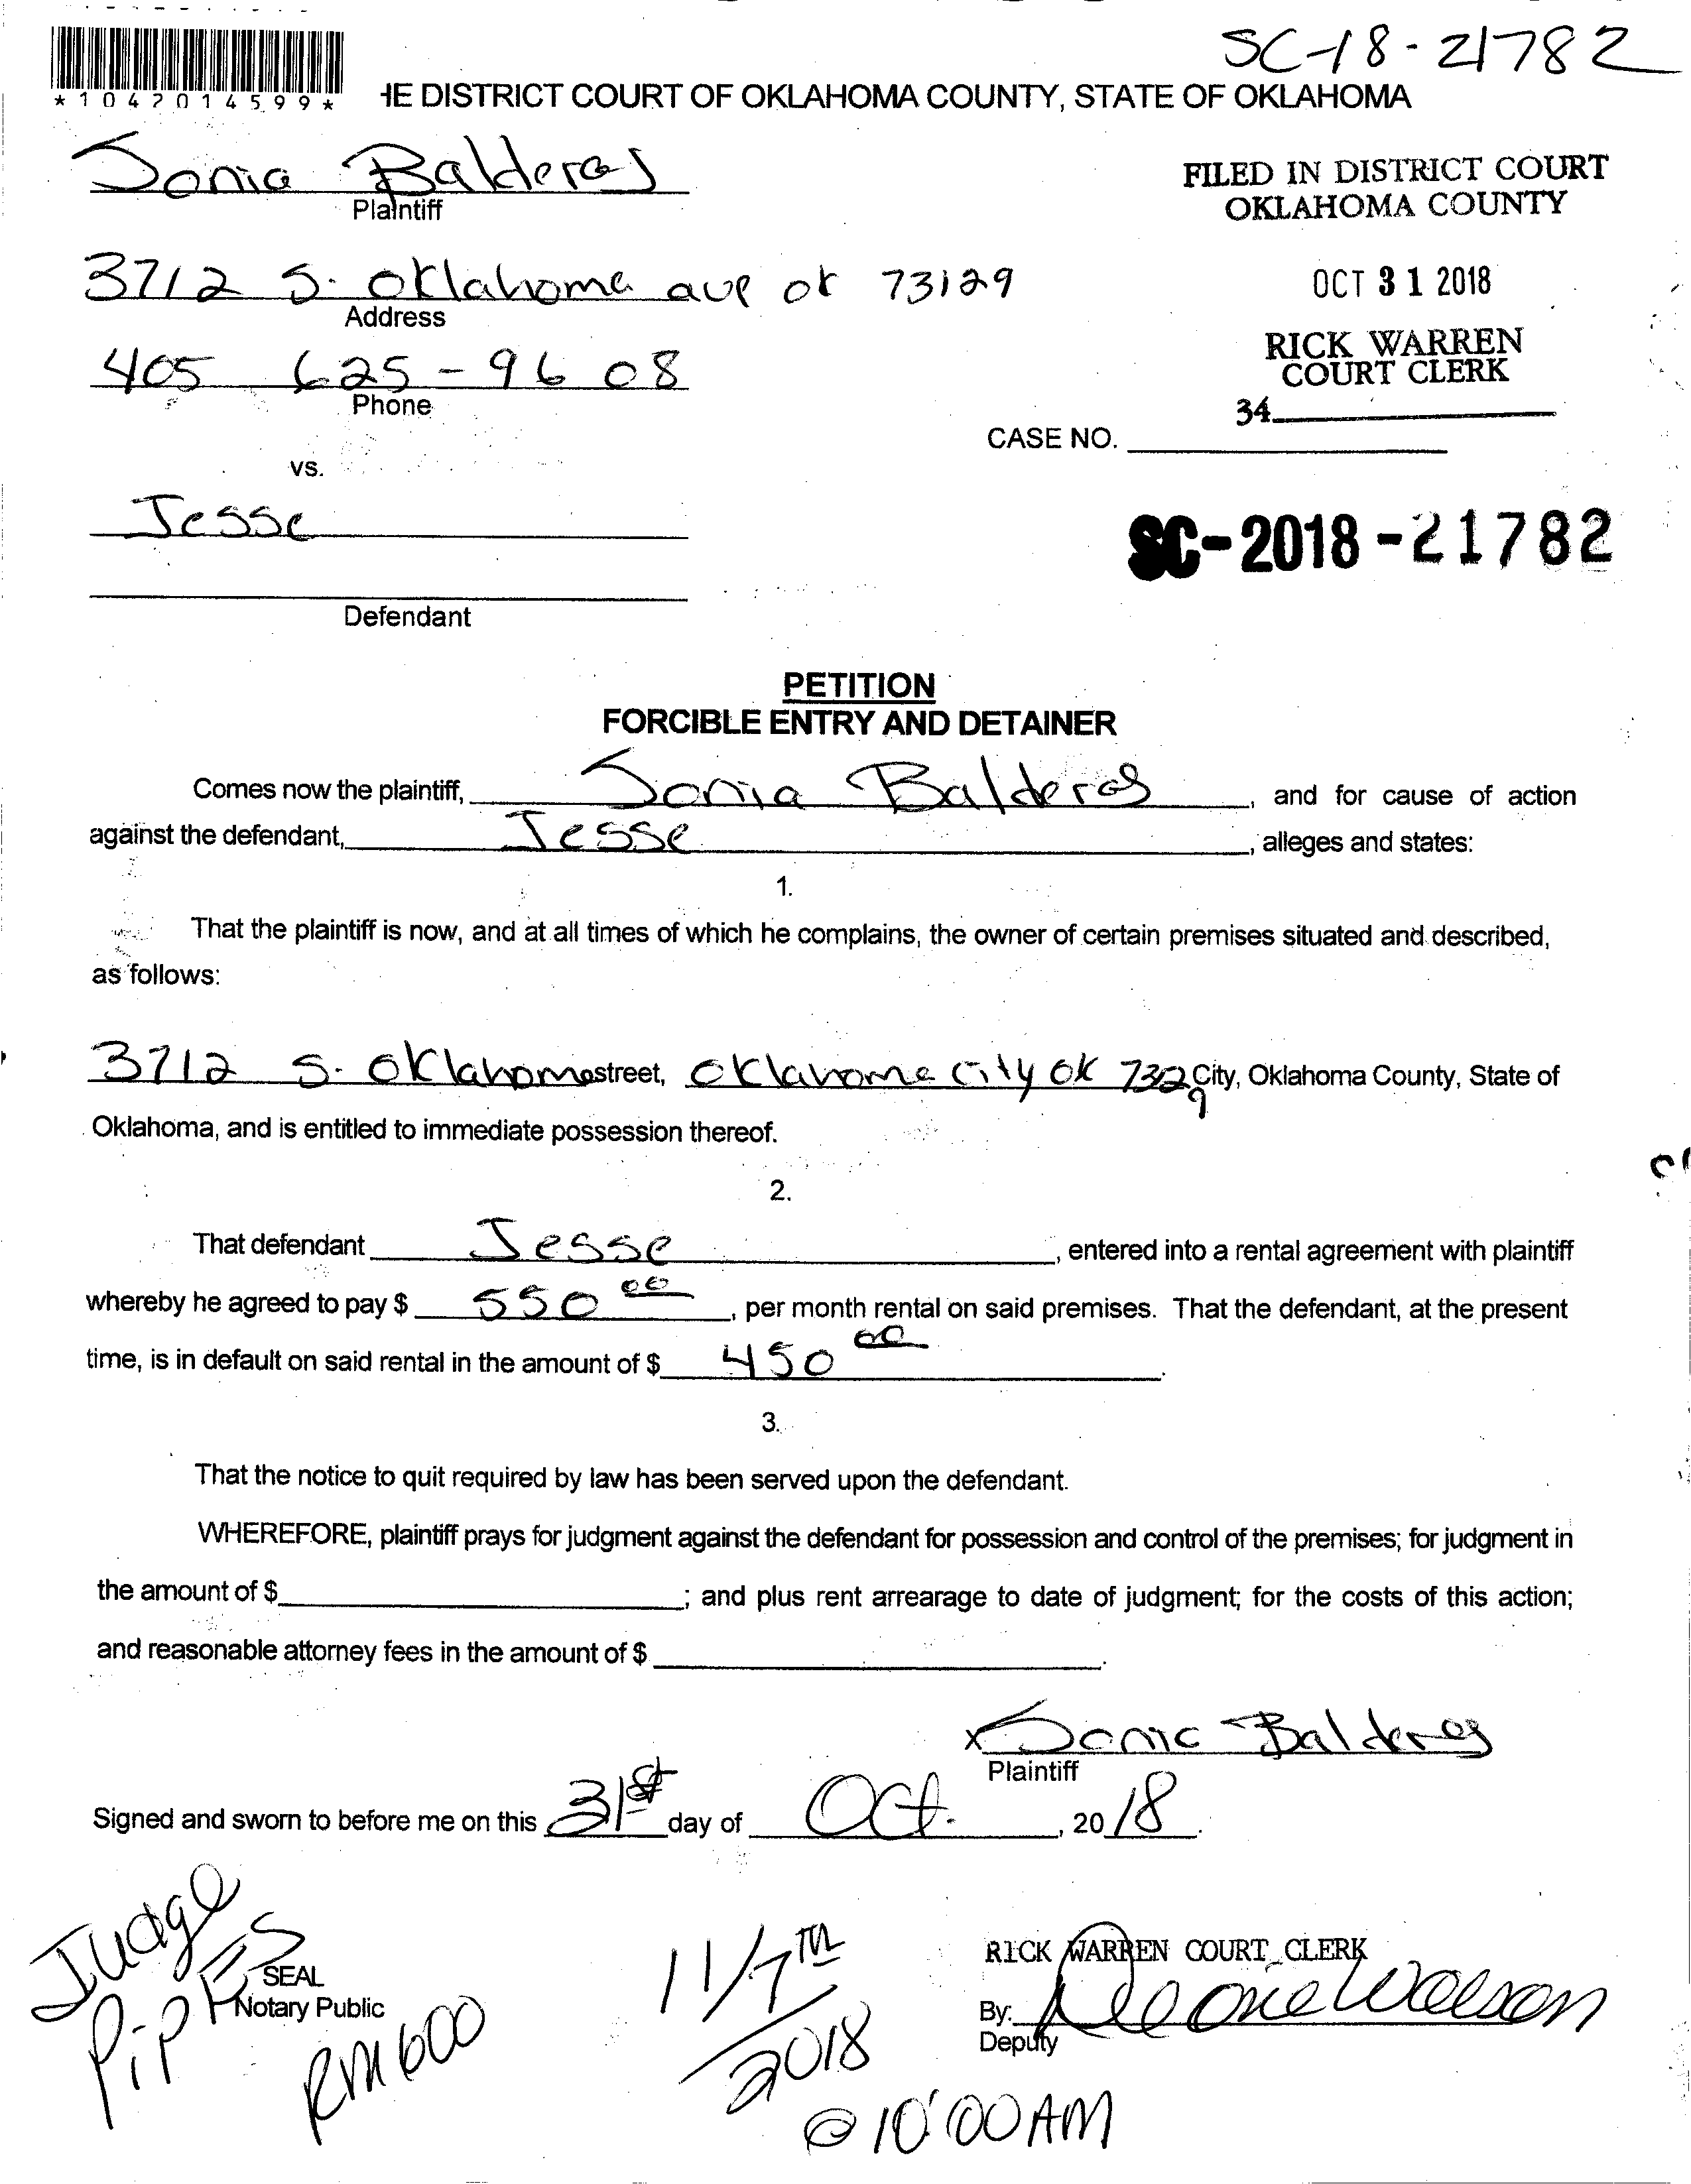 SC-18-21782
*1042014599*
HE DISTRICT COURT OF OKLAHOMA COUNTY, STATE OF OKLAHOMA
Sonia Balderas
Plaintiff
FILED IN DISTRICT COURT
OKLAHOMA COUNTY
3712 S. Oklahoma ave ok 73129
Address
OCT 31 2018
RICK WARREN
COURT CLERK
405 625-9608
Phone
34
CASE NO.
vs.
Jesse
SC-2018-21782
Defendant
PETITION
FORCIBLE ENTRY AND DETAINER
Comes now the plaintiff, Sonia Balderas, and for cause of action
against the defendant, Jesse, alleges and states:
1.
That the plaintiff is now, and at all times of which he complains, the owner of certain premises situated and described,
as follows:
3712 S. Oklahoma street, Oklahoma city OK 73129 City, Oklahoma County, State of
Oklahoma, and is entitled to immediate possession thereof.
2.
That defendant Jesse, entered into a rental agreement with plaintiff
whereby he agreed to pay $ 550 00, per month rental on said premises. That the defendant, at the present
time, is in default on said rental in the amount of $ 450 00.
3.
That the notice to quit required by law has been served upon the defendant.
WHEREFORE, plaintiff prays for judgment against the defendant for possession and control of the premises; for judgment in
the amount of $ ; and plus rent arrearage to date of judgment; for the costs of this action;
and reasonable attorney fees in the amount of $ .
x Sonia Balderas
Plaintiff
Signed and sworn to before me on this 31st day of Oct., 2018.
Judge
PiPES
SEAL
Notary Public
RM 600
11/7TH
2018
@ 10:00 AM
RICK WARREN COURT CLERK
By:
Deputy